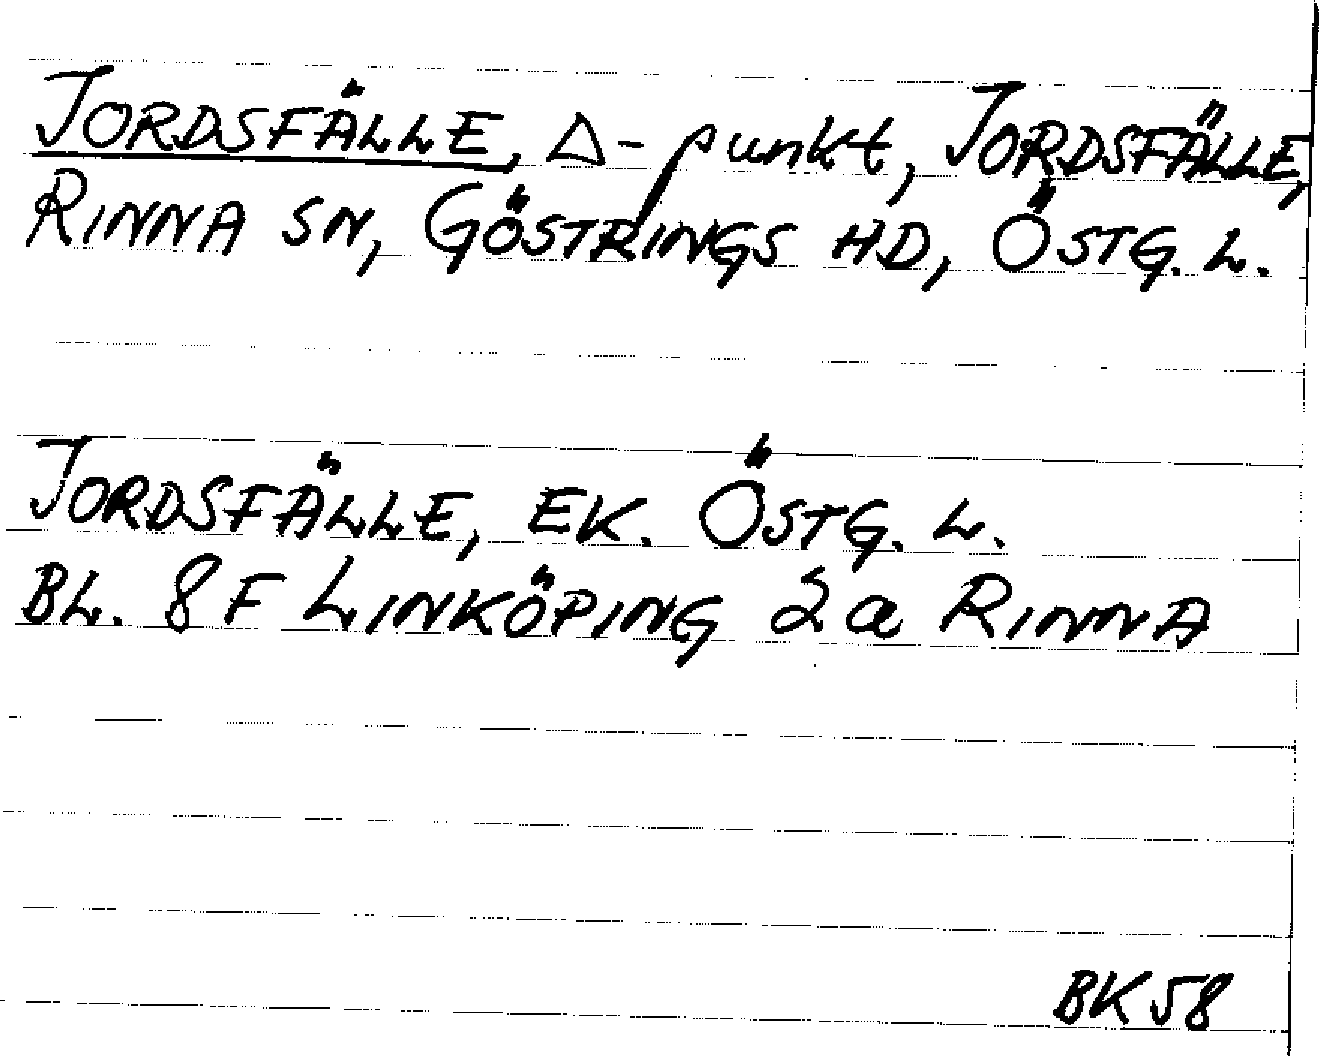 JORDSFÄLLE, Δ-punkt, JORDSFÄLLE,
RINNA SN, GÖSTRINGS HD, ÖSTG. L.
JORDSFÄLLE, EK. ÖSTG. L.
BL. 8 F LINKÖPING 2 a RINNA
BK 58